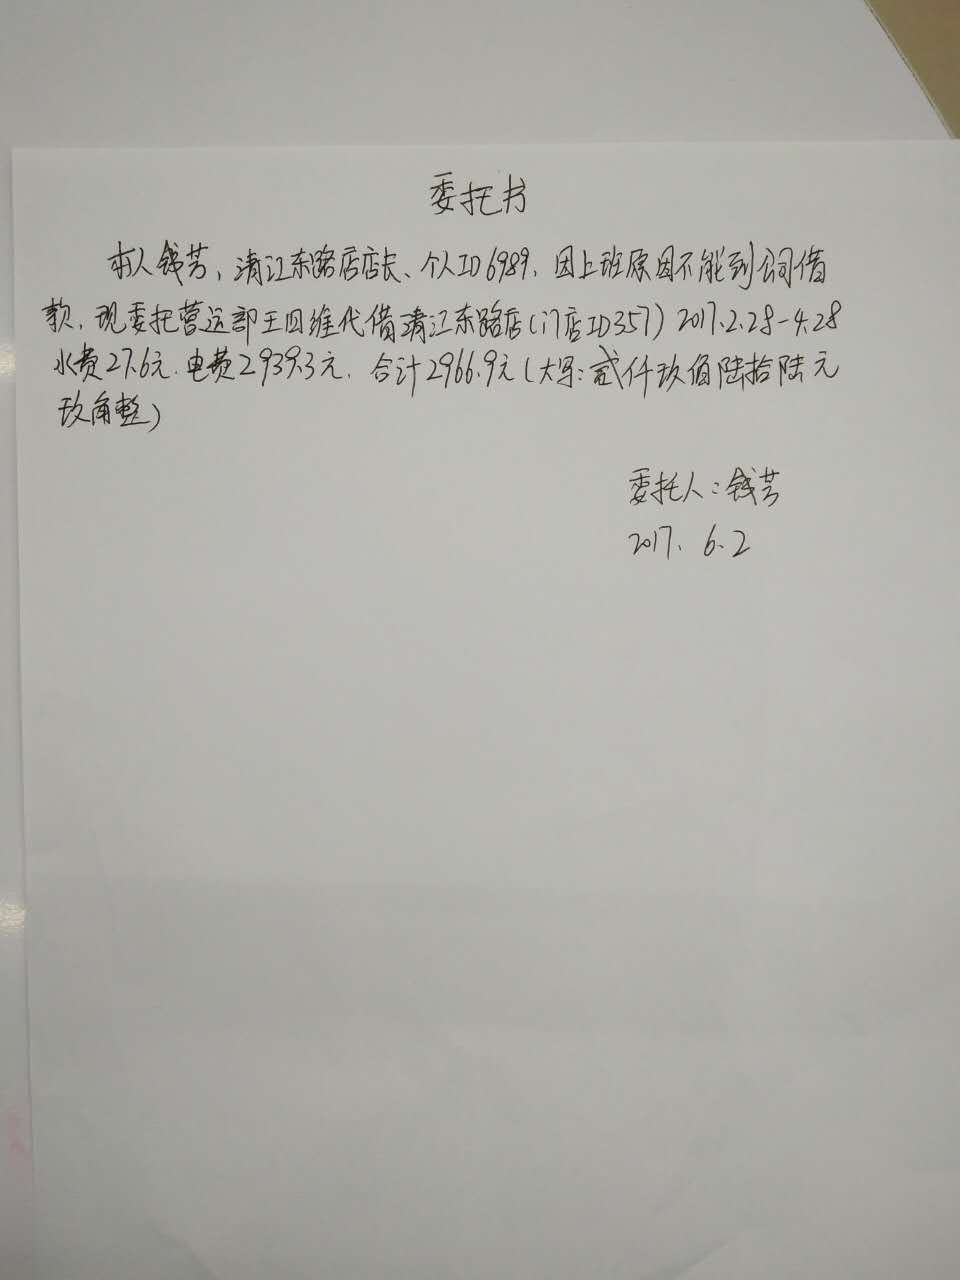 委托书
本人钱芳，清江东路店店长、个人ID6989，因上班原因不能到公司借
款，现委托营运部王四维代借清江东路店(门店ID357) 2017.2.28-4.28
水费27.6元.电费2939.3元. 合计2966.9元(大写:贰仟玖佰陆拾陆元
玖角整)
委托人:钱芳
2017. 6.2